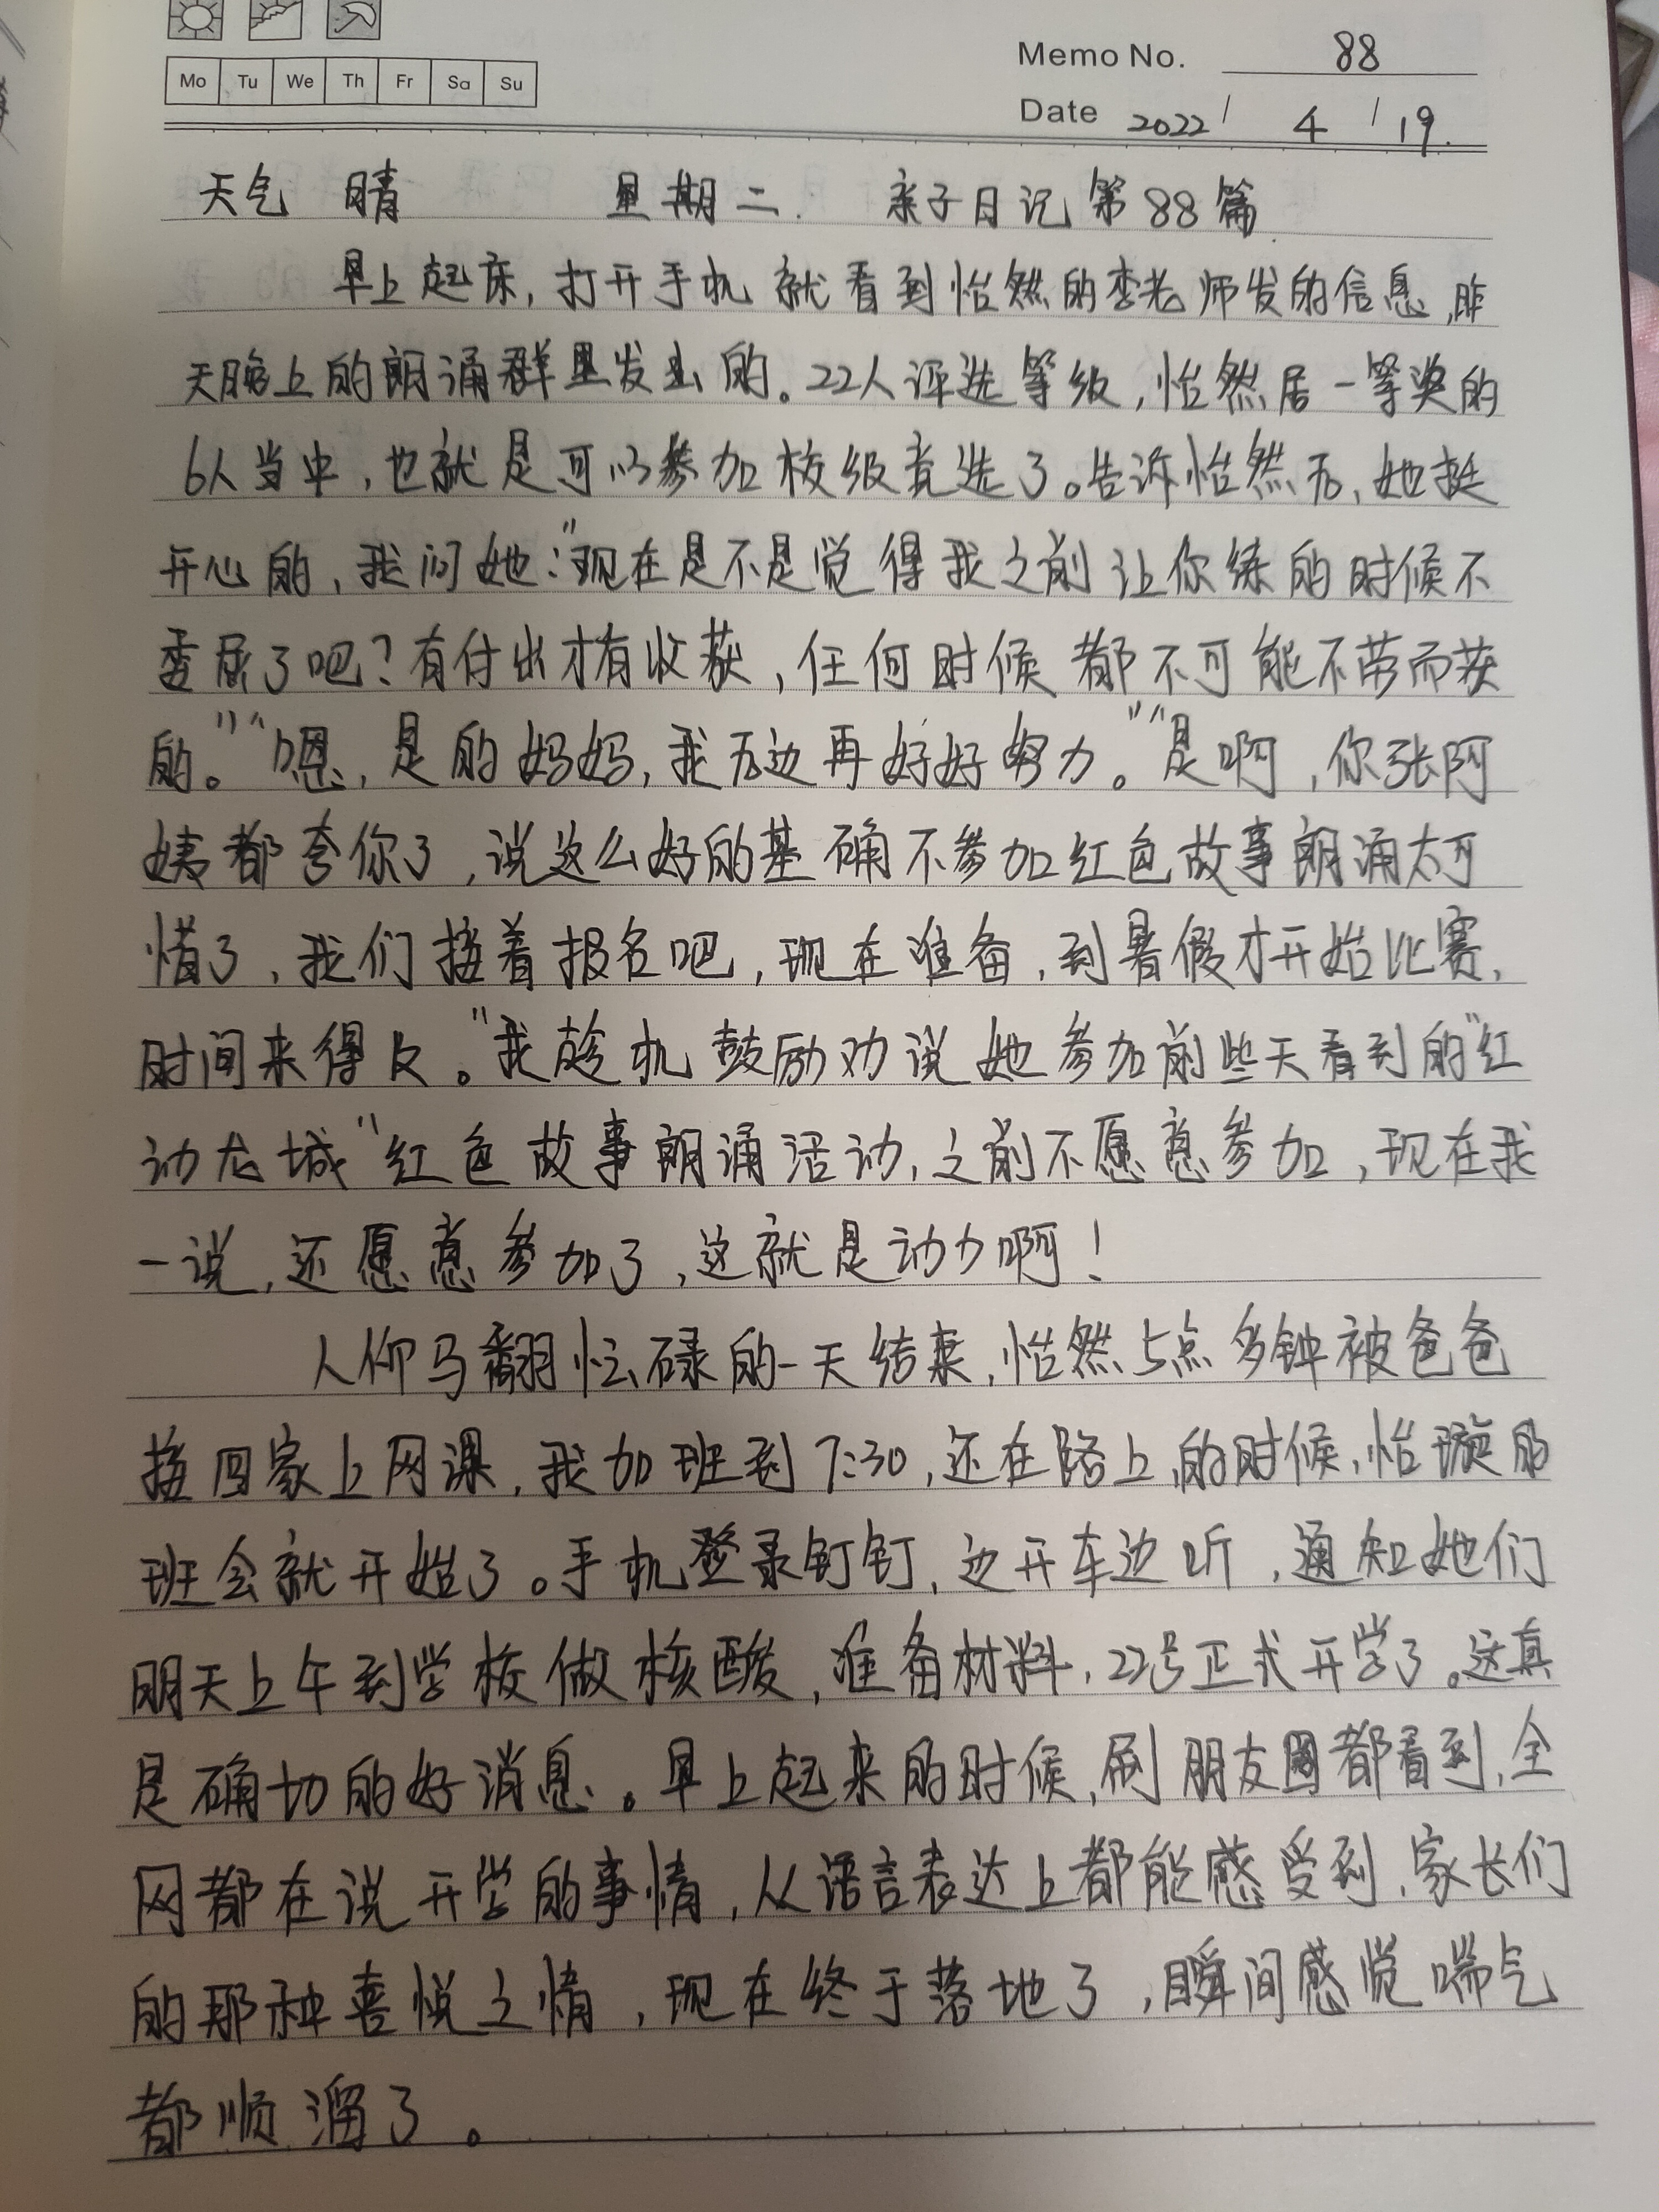 Memo No. 88
Mo Tu We Th Fr Sa Su
Date 2022 / 4 / 19.
天气 晴 星期二. 亲子日记第88篇.
早上起床,打开手机就看到怡然的李老师发的信息,昨
天晚上的朗诵群里发出的。22人评选等级,怡然居一等奖的
6人当中,也就是可以参加校级竞选了。告诉怡然后,她挺
开心的,我问她:“现在是不是觉得我之前让你练的时候不
委屈了吧?有付出才有收获,任何时候都不可能不劳而获
的。”“嗯,是的妈妈,我后边再好好努力。”“是啊,你张阿
姨都夸你了,说这么好的基础不参加红色故事朗诵太可
惜了,我们接着报名吧,现在准备,到暑假才开始比赛,
时间来得及。”我趁机鼓励劝说她参加前些天看到的“红
动龙城”红色故事朗诵活动,之前不愿意参加,现在我
一说,还愿意参加了,这就是动力啊!
人仰马翻忙碌的一天结束,怡然5点多钟被爸爸
接回家上网课,我加班到7:30,还在路上的时候,怡璇的
班会就开始了。手机登录钉钉,边开车边听,通知她们
明天上午到学校做核酸,准备材料,22号正式开学了。这真
是确切的好消息。早上起来的时候,刷朋友圈都看到,全
网都在说开学的事情,从语言表达上都能感受到,家长们
的那种喜悦之情,现在终于落地了,瞬间感觉喘气
都顺溜了。